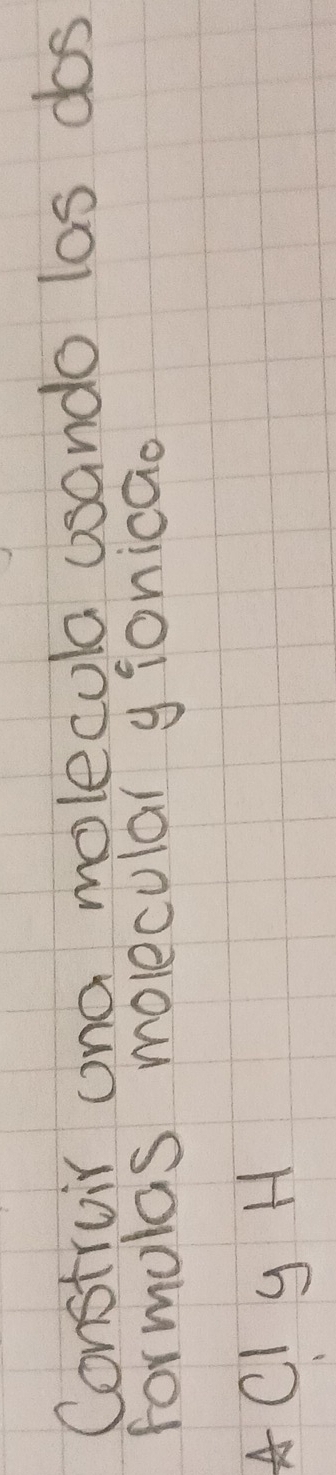 Construir una molecula usando las dos
formulas molecular y ionica.
☆ Cl y H